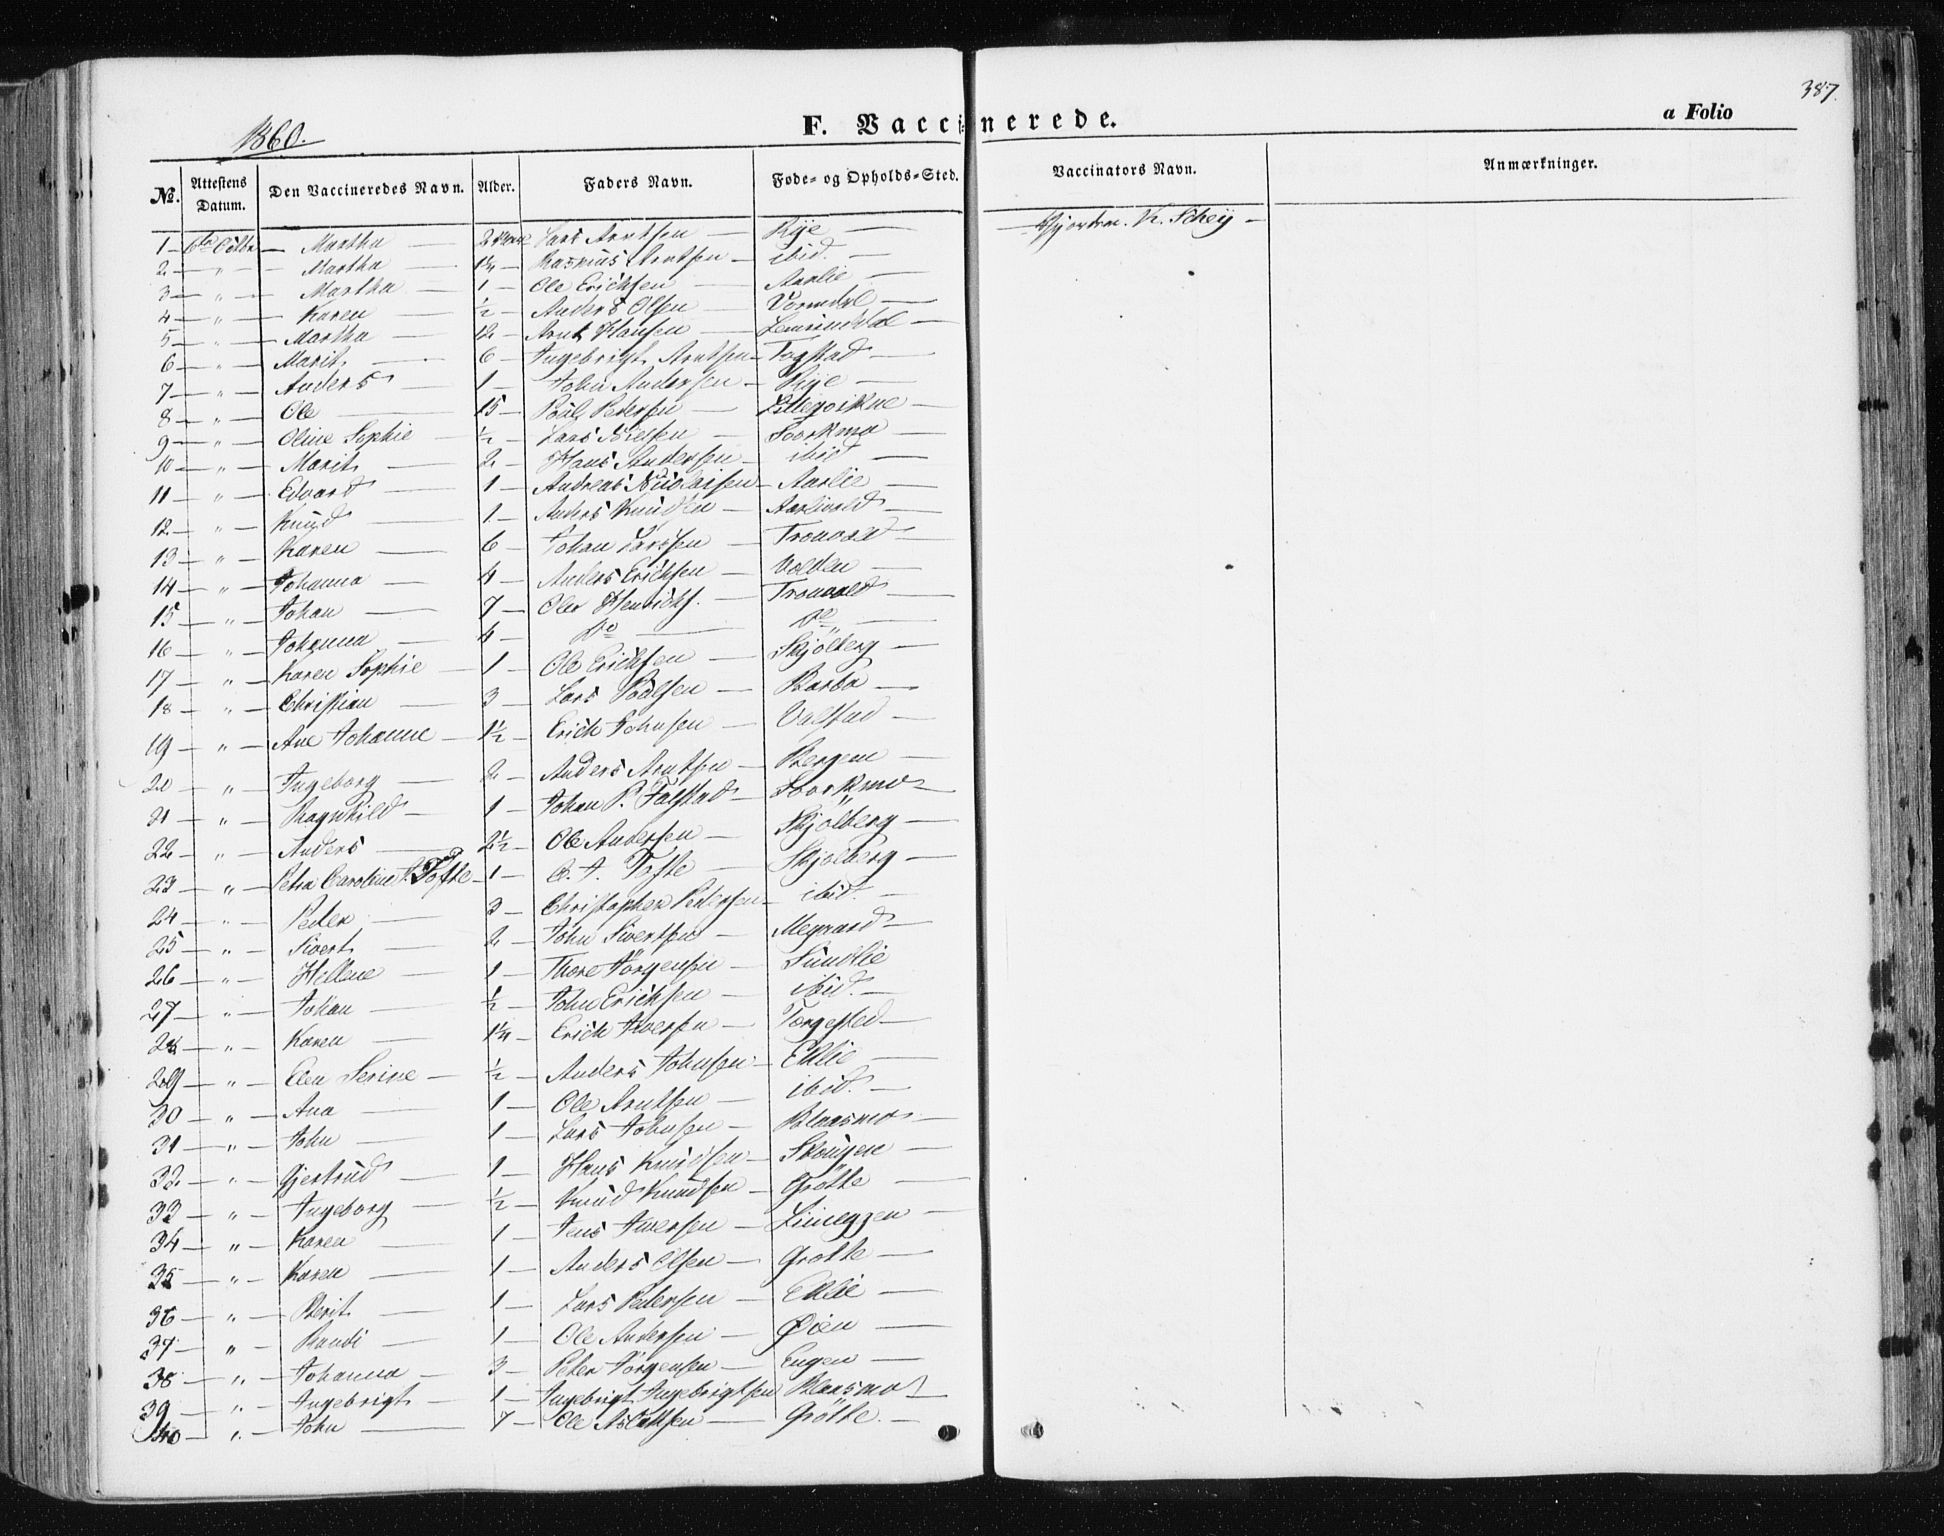 387.
1860.
F. Vaccinerede.
a Folio
No. Attestens Datum. Den Vaccineredes Navn. Alder. Faders Navn. Føde- og Opholds-Sted. Vaccinators Navn. Anmærkninger.
1 — 6te Octbr — Martha — 2 Lars Arntsen — Rije — K. Scheij —
2 — „ — Martha — 1¼ — Rasmus Arntsen — ibid. —
3 — „ — Martha — 1 — Ole Erichsen — Aarlie —
4 — „ — Karen — ½ — Anders Olsen — Vormdal —
5 — „ — Martha — 12 — Arnt Hansen —
6 — „ — Marit — 6 — Ingebrigt Arntsen — Togstad —
7 — „ — Anders — 1 — John Andersen — Rije —
8 — „ — Ole — 15 — Poul Petersen —
9 — „ — Oline Sophie — ½ — Lars Nielsen — Soorkmo —
10 — „ — Marit — 2 — Hans Andersen — ibid —
11 — „ — Edvard — 1 — Andreas Nicolaisen — Aarlie —
12 — „ — Knud — 1 — Anders Knudsen — Aarlivold —
13 — „ — Karen — 6 — Johan Larssen — Tronvold —
14 — „ — Johanna — 4 — Anders Erichsen — Volden —
15 — „ — Johan — 7 — Ole Henrichs. — Tronvold —
16 — „ — Johanna — 4 — Do — Do —
17 — „ — Karen Sophie — 1 — Ole Erichsen — Skjölberg —
18 — „ — Christian — 3 — Lars Poulsen — Barbo —
19 — „ — Ane Johanne — 1½ — Erich Johnsen — Valstad —
20 — „ — Ingeborg — 2 — Anders Arntsen — Bergem —
21 — „ — Ragnhild — 1 — Johan P. Falstad — Soorkmo —
22 — „ — Anders — 2½ — Ole Andersen — Skjölberg —
23 — „ — Petra Caroline P. Tofte — 1 — A. Tofte — Skjölberg —
24 — „ — Peder — 3 — Christopher Pedersen — ibid. —
25 — „ — Sivert — 2 — John Sivertsen — Megaard —
26 — „ — Hellene — 1 — Thore Jörgensen — Sundlie
27 — „ — Johan — ½ — John Erichsen — ibid. —
28 — „ — Karen — 1¼ — Erich Iversen — Torgersted —
29 — „ — Elen Serine — ½ — Anders Johnsen — Eklie —
30 — „ — Ana — 1 — Ole Arntsen — ibid. —
31 — „ — John — 1 — Lars Johnsen — Blaasmo —
32 — „ — Gjertrud — 1 — Hans Knudsen — Skougen —
33 — „ — Ingeborg — ½ — Knud Knudsen — Grötte —
34 — „ — Karen — 1 — Jens Iversen —
35 — „ — Karen — 1 — Anders Olsen — Grötte —
36 — „ — Berit — 1 — Lars Pedersen — Eklie —
37 — „ — Randi — 1 — Ole Andersen — Öien —
38 — „ — Johanna — 3 — Peter Jörgensen — Engen —
39 — „ — Ingebrigt — 1 — Ingebrigt Ingebrigtsen Blaasmo —
40 — „ — John — 7 — Ole Aslaksen — Grötte. —